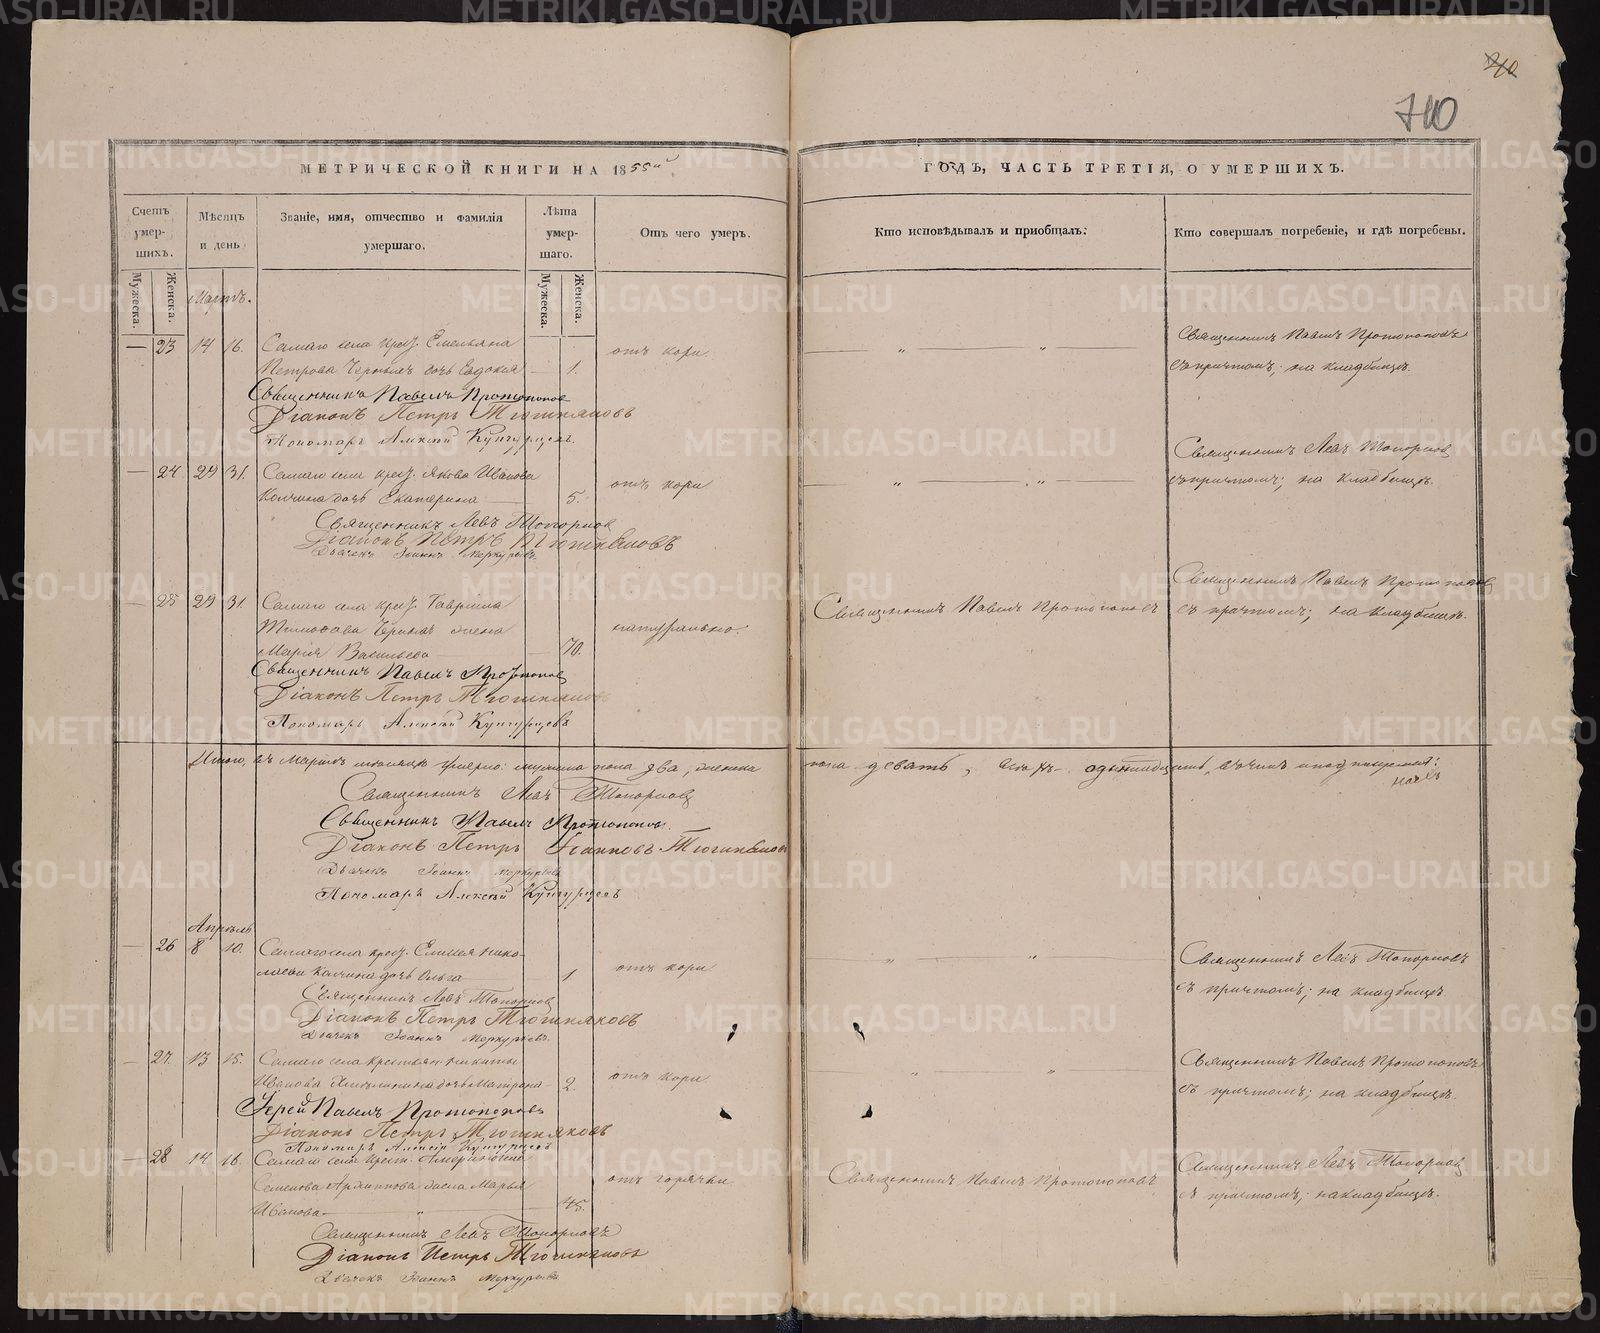 740
МЕТРИЧЕСКОЙ КНИГИ НА 1855й
ГОДЪ, ЧАСТЬ ТРЕТІЯ, О УМЕРШИХЪ.
Счетъ умер-шихъ.
Мужеска.
Женска.
Мѣсяцъ и день
Званіе, имя, отчество и фамилія умершаго.
Лѣта умер-шаго.
Мужеска.
Женска.
Отъ чего умеръ.
Кто исповѣдывалъ и пріобщалъ:
Кто совершалъ погребеніе, и гдѣ погребены.
Мартъ.
— 23 14 16. Самаго села крес. Емельяна
Петрова дочь Евдокия — 1.
отъ кори
Священникъ Павелъ Протопоповъ
съ причтомъ; на кладбищѣ.
Священникъ Павелъ Протопопов
Діаконъ Петръ
Пономарь Алексій Кунгурцевъ.
— 24 29 31. Самаго села крес. Якова Иванова
дочь Екатерина — 5.
отъ кори
Священникъ Левъ Топорков
съ причтомъ; на кладбищѣ.
Священникъ Левъ Топорков
Діаконъ Петръ
Дьячекъ Іоаннъ Меркурьевъ
— 25 29 31. Самаго села крес. Гавріила
жена
Марія Васильева — 70.
натурально.
Священникъ Павелъ Протопоповъ
Священникъ Павелъ Протопопов
съ причтомъ; на кладбищѣ.
Священникъ Павелъ Протопопов
Діаконъ Петръ
Пономарь Алексій Кунгурцевъ
Итого, въ Мартѣ мѣсяцѣ умерло: мужеска пола два, женска
пола девять,
Священникъ Левъ Топорков
Священникъ Павелъ Протопопов.
Діаконъ Петръ
Дьячекъ Іоаннъ Меркурьевъ
Пономарь Алексій Кунгурцевъ
Апрѣль
— 26 8 10. Самаго села крес. Нико-
лаева дочь Ольга 1
отъ кори
Священникъ Левъ Топорковъ
съ причтомъ; на кладбищѣ
Священникъ Левъ Топорков
Діаконъ Петръ
Дьячекъ Іоаннъ Меркурьевъ.
— 27. 13 15. Самаго села крестьян. Никиты
Иванова дочь Матрона — 2.
отъ кори
Священникъ Павелъ Протопоповъ
съ причтомъ; на кладбищѣ.
Іерей Павелъ Протопоповъ
Діаконъ Петръ
Пономарь Алексій Кунгурцевъ
— 28 14 16. Самаго села крест.
Семенова жена Марья
Иванова — 45.
отъ горячки
Священникъ Павелъ Протопоповъ
Священникъ Левъ Топорков
съ причтомъ; на кладбищѣ.
Священникъ Левъ Топорковъ
Діаконъ Петръ
Дьячекъ Іоаннъ Меркурьевъ
METRIKI.GASO-URAL.RU